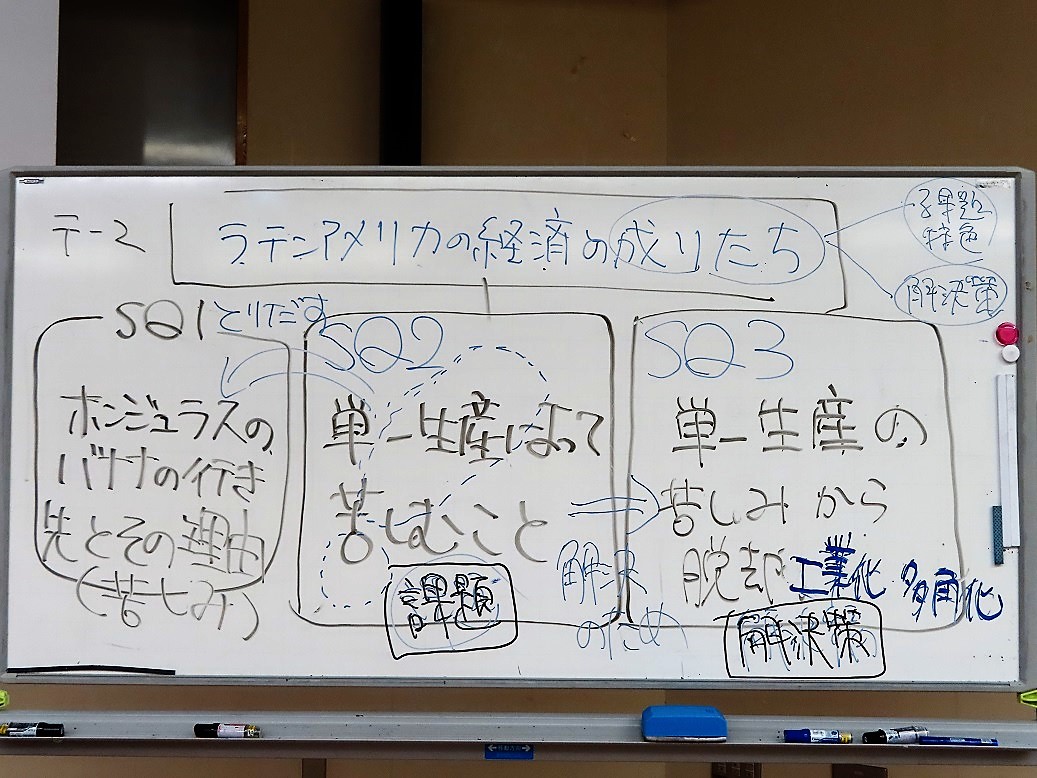 テーマ
ラテンアメリカの経済の成りたち
課題
特色
解決策
SQ1
とりだす
ホンジュラスの
バナナの行き
先とその理由
(苦しみ)
SQ2
単一生産によって
苦しむこと
課題
解決
のため
SQ3
単一生産の
苦しみから
脱却 工業化 多角化
解決策